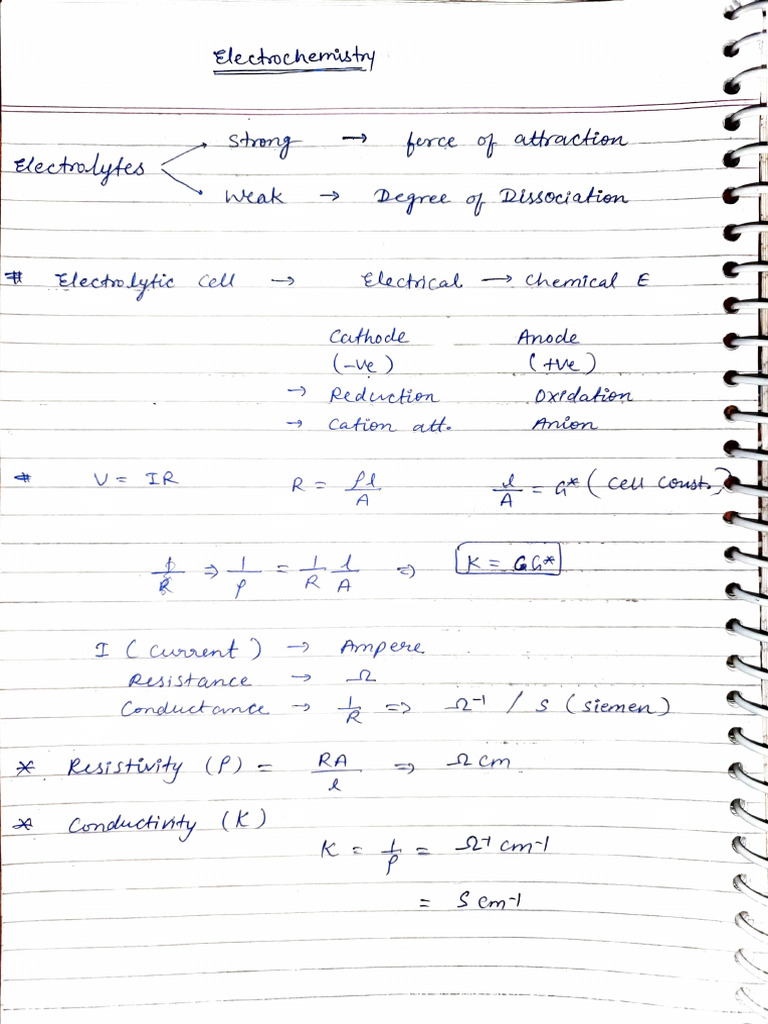 Electrochemistry
Electrolytes
Strong → force of attraction
Weak → Degree of Dissociation
# Electrolytic cell → Electrical → Chemical E
Cathode Anode
(-ve) (+ve)
→ Reduction Oxidation
→ Cation att. Anion
# V = IR R = ρl/A l/A = G* (Cell Const.)
⇒ 1/ρ = 1/R l/A ⇒ K = GG*
I (Current) → Ampere
Resistance → Ω
Conductance → 1/R ⇒ Ω-1 / S (siemen)
* Resistivity (ρ) = RA/l ⇒ Ω cm
* Conductivity (K)
K = 1/ρ = Ω-1 cm-1
= S cm-1